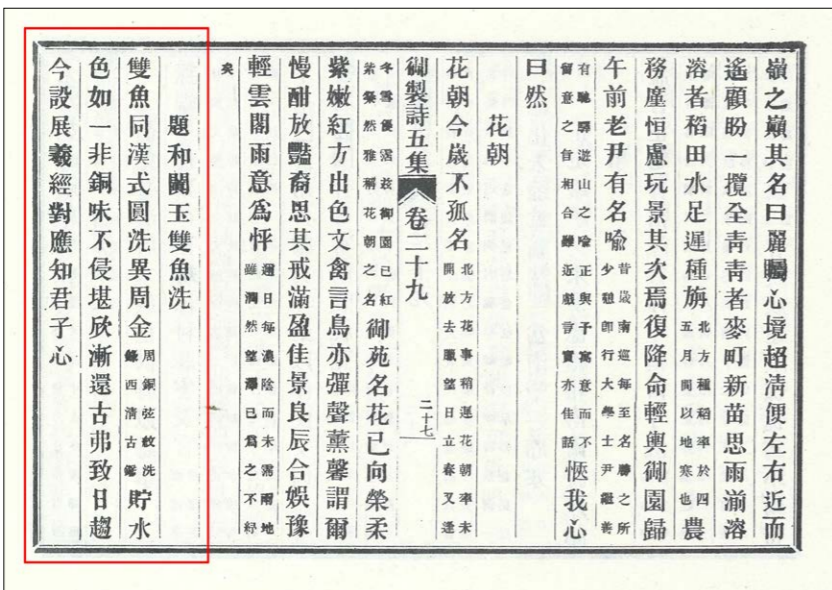 嶺之巔其名曰麗矚心境超清便左右近而
遙顧盼 攬全青青者麥町新苗思雨湔溶
溶者稻田水足遲種旃北方種稻率於四五月間以地寒也農
務廑恒慮玩景其次焉復降命輕輿御園歸
午前老尹有名喻昔歲南巡每至名勝之所少憩即行大學士尹繼善
有馳驛遊山之喻正與予寓意而不留意之旨相合雖近戲言實亦佳話愜我心
曰然
花朝
花朝今歲不孤名北方花事稍遲花朝率未開放去臘望日立春又逢
御製詩五集 卷二十九 二十七
冬雪優霑茲御園已紅紫粲然雅稱花朝之名御苑名花已向榮柔
紫嫩紅方出色文禽言鳥亦彈聲薰馨謂爾
慢酣放豔裔思其戒滿盈佳景良辰合娛豫
輕雲閣雨意為怦邇日每濃陰而未霈雨地雖潤然望澤已為之不紓
矣
題和闐玉雙魚洗
雙魚同漢式圓洗異周金周銅弦紋洗錄西清古鑑貯水
色如一非銅味不侵堪欣漸還古弗致日趨
今設展羲經對應知君子心